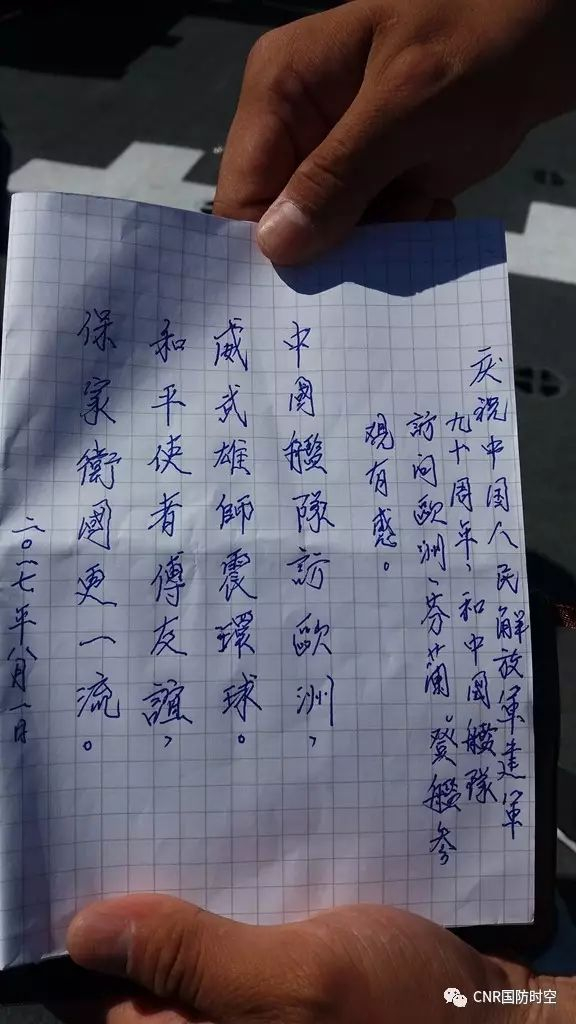 庆祝中国人民解放军建军
九十周年、和中國艦隊
訪问歐洲、芬蘭。登艦参
观有感。
中國艦隊訪歐洲、
威武雄師震環球。
和平使者傅友誼、
保家衛國更一流。
二〇一七年八月一日
CNR国防时空